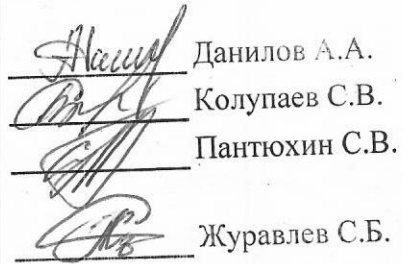 Данилов А.А.
Колупаев С.В.
Пантюхин С.В.
Журавлев С.Б.